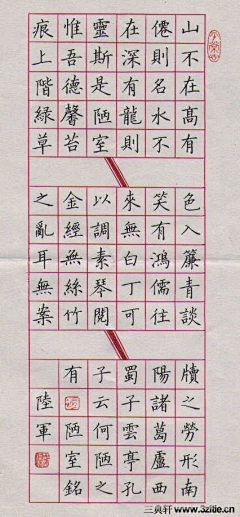 山不在髙有
僊則名水不
在深有龍則
靈斯是陋室
惟吾德馨苔
痕上階緑草
色入簾青談
笑有鴻儒往
來無白丁可
以調素琴閱
金經無絲竹
之亂耳無案
牘之勞形南
陽諸葛廬西
蜀子雲亭孔
子云何陋之
有
陋室銘
陸軍
三典轩 www.3zitie.cn